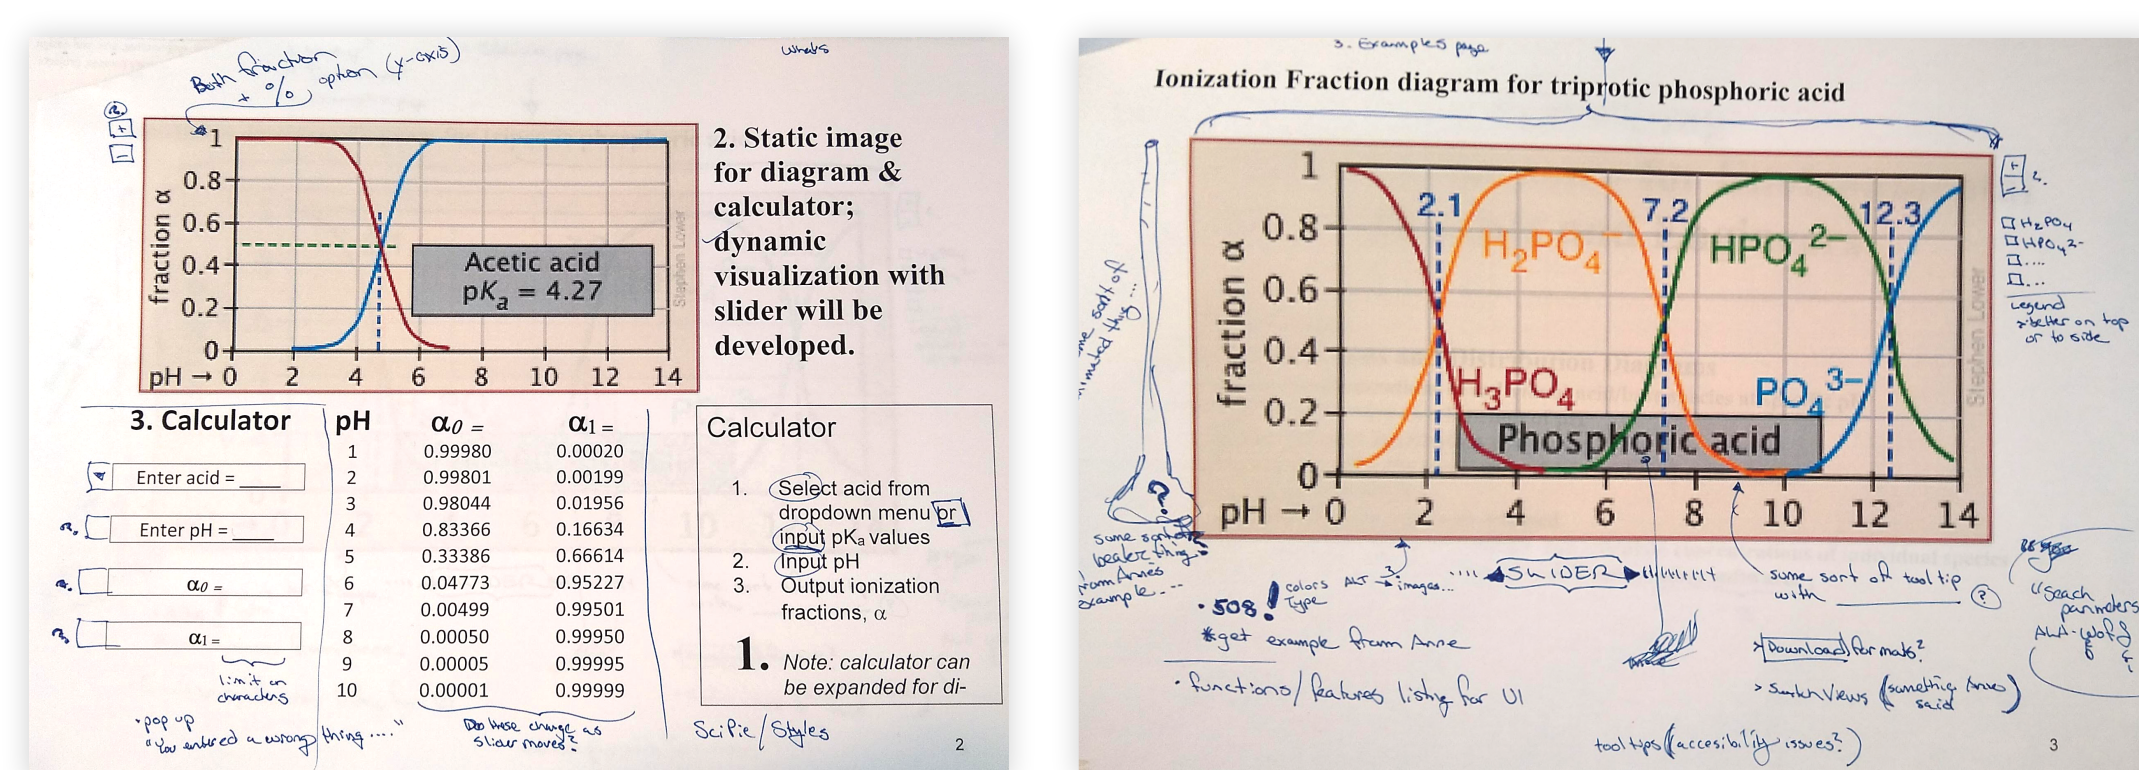 Both fraction
+ % option (y-axis)
whats
2.
+
-
1
0.8
0.6
0.4
0.2
0
fraction α
pH → 0 2 4 6 8 10 12 14
Acetic acid
pKa = 4.27
Stephen Lower
2. Static image
for diagram &
calculator;
dynamic
visualization with
slider will be
developed.
3. Calculator
Enter acid = ____
Enter pH = ____
α0 =
α1 =
limit on
characters
• pop up
"You entered a wrong thing ...."
pH α0 = α1 =
1 0.99980 0.00020
2 0.99801 0.00199
3 0.98044 0.01956
4 0.83366 0.16634
5 0.33386 0.66614
6 0.04773 0.95227
7 0.00499 0.99501
8 0.00050 0.99950
9 0.00005 0.99995
10 0.00001 0.99999
Do these change as
slider moves?
Calculator
1. Select acid from
dropdown menu or
input pKa values
2. Input pH
3. Output ionization
fractions, α
1. Note: calculator can
be expanded for di-
SciPie/Styles
2
3. Examples page
Ionization Fraction diagram for triprotic phosphoric acid
1
0.8
0.6
0.4
0.2
0
fraction α
2.1 7.2 12.3
H2PO4− HPO4 2−
H3PO4 PO4 3−
Phosphoric acid
pH → 0 2 4 6 8 10 12 14
Stephen Lower
+
-
2.
H2PO4
HPO4 2-
....
...
Legend
> better on top
or to side
sort of
thing...
?
some sort of
beaker thing
from Anne's
example...
• 508! colors
Type
ALT → images...
.... SLIDER
* get example from Anne
• functions/features listing for UI
some sort of tool tip
with ________ ?
> Download formats?
> Switch Views (something Annes
said)
"Seach
parmeters
tool tips (accesibility issues?)
3